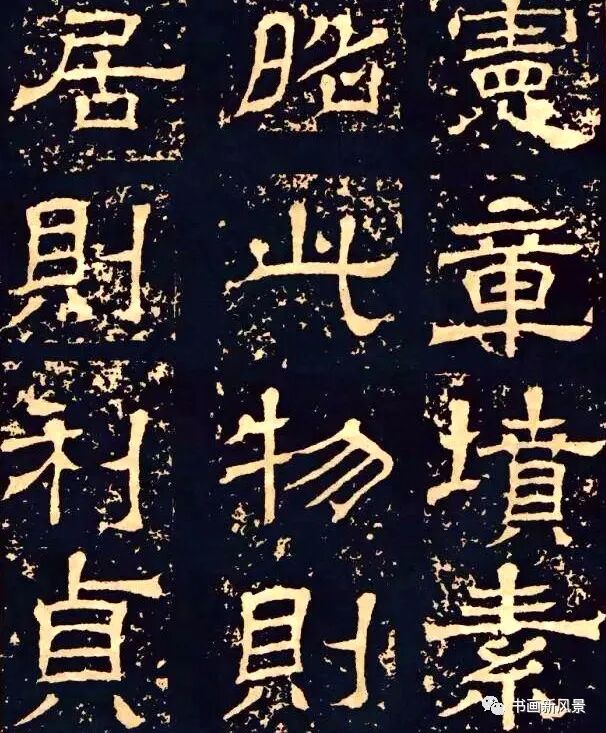 憲章墳素
昭此物則
居則利貞
书画新风景